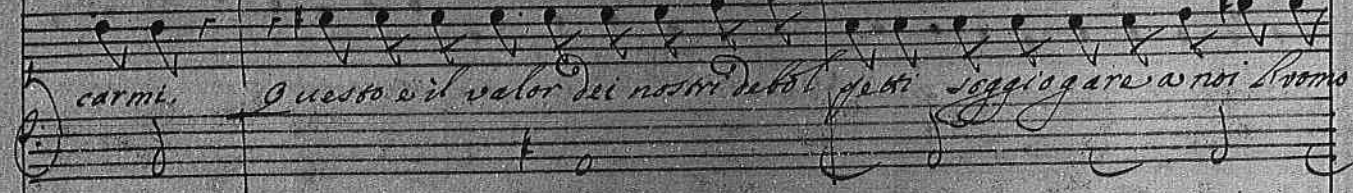 carmi. Questo è il valor dei nostri debol petti soggiogare a noi L'uomo